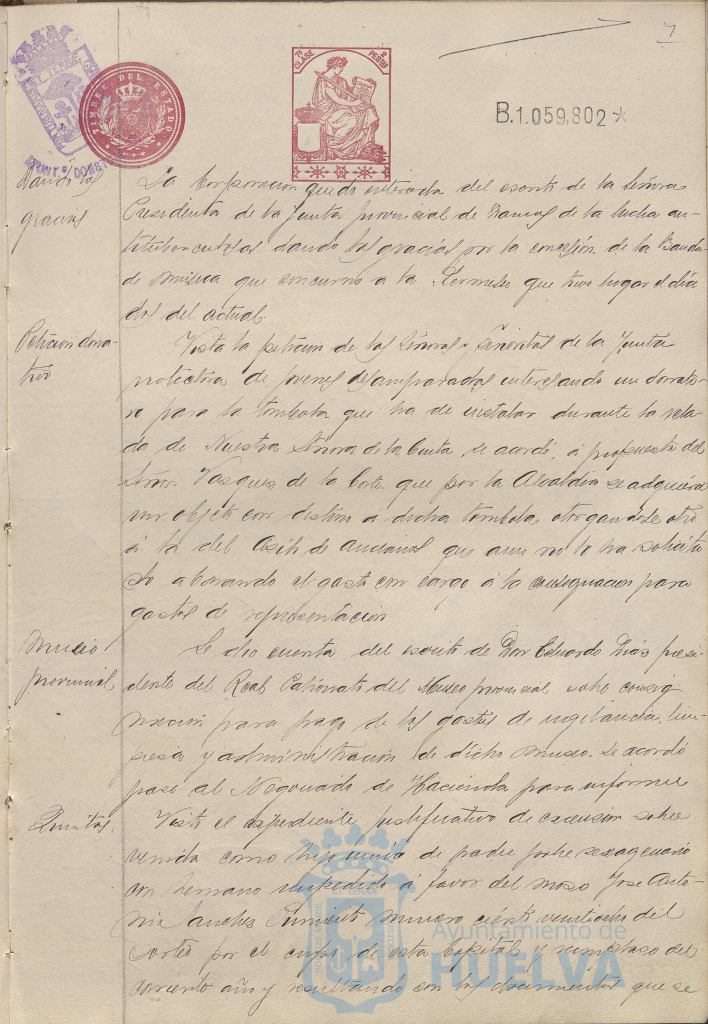 7
7ª CLASE
2 PESTAS
TIMBRE DEL ESTADO
B.1.059.802*
Dando las
gracias
La Corporacion quedo enterada del escrito de la Señora
Presidenta de la Junta provincial de Damas de la lucha an-
tituberculosas dando las gracias por la concesión de la Banda
de musica que concurrio a la Kermesse que tuvo lugar el dia
dos del actual.
Peticion dona-
tivo
Vista la peticion de las Señoras y Señoritas de la Junta
protectora de jovenes desamparadas interesando un donati-
vo para la tombola que ha de instalar durante la vela-
da de Nuestra Señora de la Cinta, se acordó, á propuesta del
Señor Vasquez de la Corte que por la Alcaldia se adquiera
un objeto con destino á dicha tombola, otorgandose otro
á la del Asilo de ancianos que aun no lo ha solicita-
do abonando el gasto con cargo á la consignacion para
gastos de representacion
Museo
provincial
Se dio cuenta del escrito de Don Eduardo Dias presi-
dente del Real Patronato del Museo provincial sobre consig-
nacion para pago de los gastos de vigilancia, lim-
piesa y administracion de dicho museo. Se acordó
pase al Negociado de Hacienda para informe
Quintas.
Visto el expediente justificativo de excension sobre
venida como hijo unico de padre pobre sexagenario
con hermano impedido á favor del moso Jose Anto-
nio Sanchez Pimiento numero ciento veintiocho del
sorteo por el cupo de esta Capital y reemplaso del
corriente año y resultando con los documentos que se
Ayuntamiento de
HUELVA